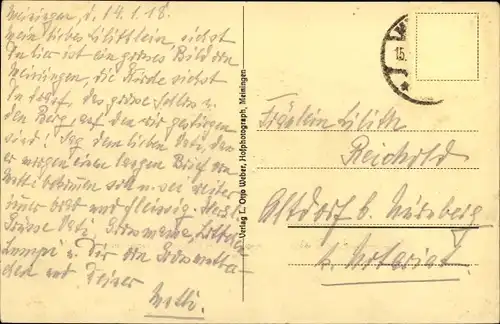 Meiningen, d. 14.1.18.
Mein liebes Lilithlein, siehst
Du hier ist ein grosses Bild von
Meiningen, die Kirche siehst
Du drauf, das grosse Schloss u.
den Berg, auf den wir gestiegen
sind! Sag dem lieben Vati, dass
er morgen einen langen Brief von
Mutti bekommen soll u. sei weiter
immer brav und fleissig. Herzl.
Grüsse Vati, Grossmama,
Lumpi u. Dir von Grossmutti
und Deiner
Mutti.
Verlag L. Otto Weber, Hofphotograph, Meiningen
15.
Fräulein Lilith
Reichold
Altdorf b. Nürnberg
b. Notariat